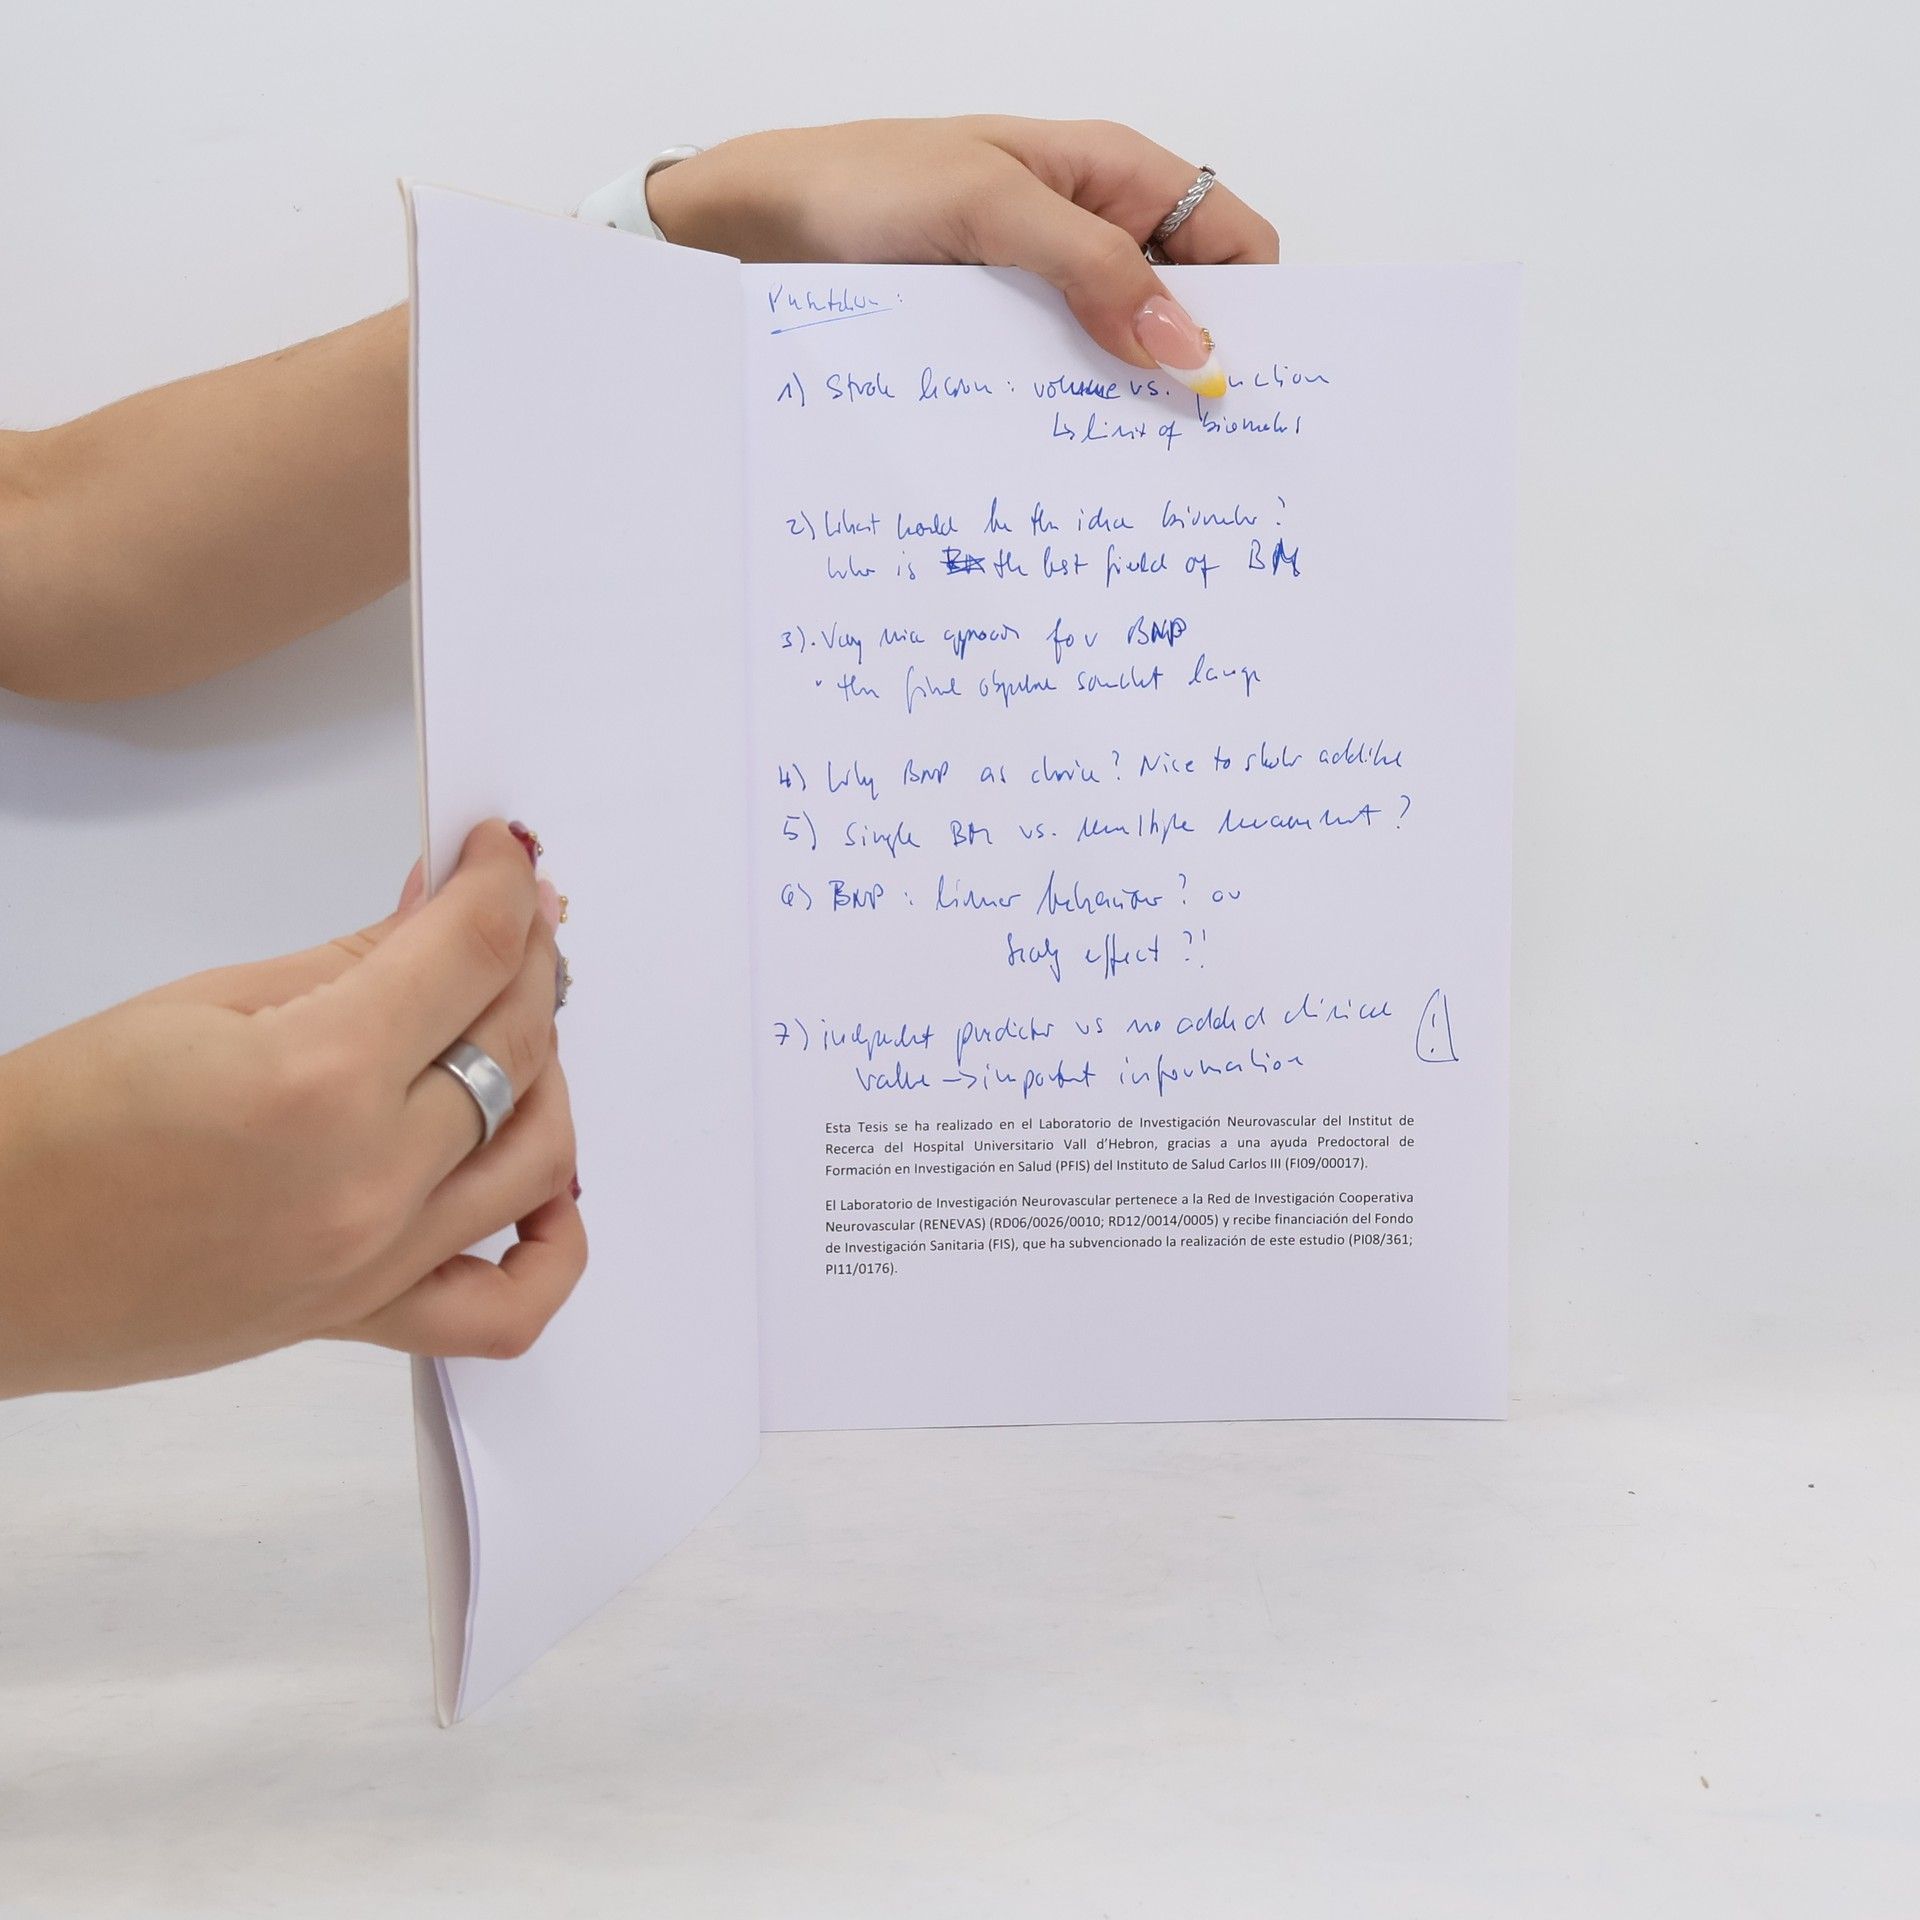 1) Stroke lesion : volume vs.
↳ limit of
2) What would be the ideal biomarker ?
is the best field of BM
3). Very nice approach for BNP
4) Why BNP as choice ? Nice to show additive
5) Single BM vs. multiple measurement ?
6) BNP : linear behavior ? or
effect ?!
7) independent predictor vs no added clinical !
value → important information
Esta Tesis se ha realizado en el Laboratorio de Investigación Neurovascular del Institut de
Recerca del Hospital Universitario Vall d’Hebron, gracias a una ayuda Predoctoral de
Formación en Investigación en Salud (PFIS) del Instituto de Salud Carlos III (FI09/00017).
El Laboratorio de Investigación Neurovascular pertenece a la Red de Investigación Cooperativa
Neurovascular (RENEVAS) (RD06/0026/0010; RD12/0014/0005) y recibe financiación del Fondo
de Investigación Sanitaria (FIS), que ha subvencionado la realización de este estudio (PI08/361;
PI11/0176).